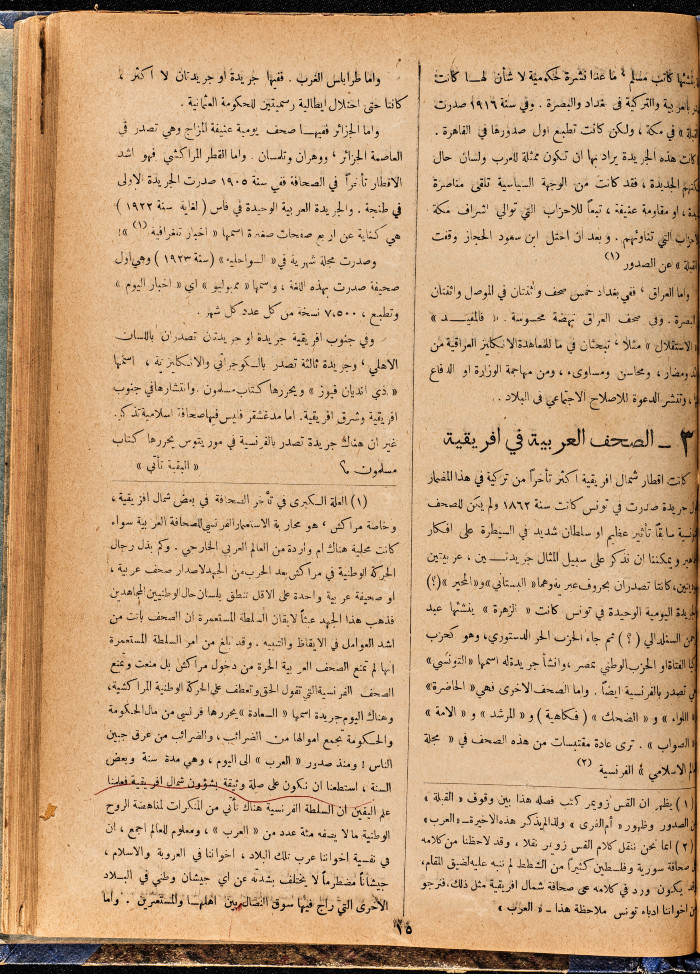 ينشئها كاتب مسلم ، ما عدا نشرة لحكومية لا شأن لها كانت
بالعربية والتركية في بغداد والبصرة . وفي سنة ١٩١٦ صدرت
« في مكة ، ولكن كانت تطبع اول صدورها في القاهرة .
كانت هذه الجريدة يراد بها ان تكون ممثلة للعرب ولسان حال
الجديدة ، فقد كانت من الوجهة السياسية تلقى مناصرة
، او مقاومة عنيفة ، تبعاً للاحزاب التي توالي اشراف مكة
التي تناوئهم . وبعد ان احتل ابن سعود الحجاز وقفت
« عن الصدور (١)
واما العراق ، ففي بغداد خمس صحف واثنتان في الموصل واثنتان
البصرة . وفي صحف العراق نهضة محسوسة . « فالمفيــد »
« الاستقلال » مثلاً ، تبحثان في ما للمعاهدة الانكليز العراقية من
ومضار ، ومحاسن ومساوىء ، ومن مهاجمة الوزارة او الدفاع
، وتنشر الدعوة للاصلاح الاجتماعي في البلاد .
٣ – الصحف العربية في افريقية
كانت اقطار شمال افريقية اكثر تأخراً من تركية في هذا المضمار
جريدة صدرت في تونس كانت سنة ١٨٦٢ ولم يكن للصحف
سابقاً تأثير عظيم او سلطان شديد في السيطرة على افكار
ويمكننا ان نذكر على سبيل المثال جريدتــين ، عربيتين
كانتا تصدران بحروف عبرية وهما « البستاني » و« المخير » (؟)
الجريدة اليومية الوحيدة في تونس كانت « الزهرة » ينشئها عبد
السنغدالي ( ؟ ) ثم جاء الحزب الحر الدستوري ، وهو كحزب
الفتاة او الحزب الوطني بمصر ، وانشأ جريدة له اسمها « التونسي »
تصدر بالفرنسية ايضاً . واما الصحف الاخرى فهي « الحاضرة »
« اللواء » و « الضحك » ( فكاهية ) و « المرشد » و « الامة »
« الصواب » . ترى عادة مقتبسات من هذه الصحف في « مجلة
الاسلامي » الفرنسية (٢)
(١) يظهر ان القس زويمر كتب فصله هذا بين وقوف « القبلة »
الصدور وظهور « ام القرى » ولذا لم يذكر هذه الاخيرة – « العرب »
(٢) انما نحن ننقل كلام القس زويمر نقلا ، وقد لاحظنا من كلامه
صحافة سورية وفلسطين كثيراً من الشطط لم ننبه عليه لضيق المقام ،
يكون ورد في كلامه عن صحافة شمال افريقية مثل ذلك ، فنرجو
اخواننا ادباء تونس ملاحظة هذا – « العرب »
واما طرابلس الغرب . ففيها جريدة او جريدتان لا اكثر
كانتا حتى احتلال ايطالية رسميتين للحكومة العثمانية .
واما الجزائر ففيهــا صحف يومية عنيفة المزاج وهي تصدر في
العاصمة الجزائر ، ووهران وتلمسان . واما القطر المراكشي فهو اشد
الاقطار تأخراً في الصحافة ففي سنة ١٩٠٥ صدرت الجريدة الاولى
في طنجة . والجريدة العربية الوحيدة في فأس ( لغاية سنة ١٩٢٢ )
هي كناية عن اربع صفحات صغيرة اسمها « اخبار تلغرافية » (١) !
وصدرت مجلة شهرية في « السواحلية » ( سنة ١٩٢٣ ) وهي اول
صحيفة صدرت بهذه اللغة ، واسمها « ممبوليو » اي « اخبار اليوم »
وتطبع ٧،٥٠٠ نسخة من كل عدد كل شهر .
وفي جنوب افريقية جريدة او جريدتن تصدران باللسان
الاهلي ، وجريدة ثالثة تصدر بالكوجراتي والانكليزية ، اسمها
« ذي انديان فيوز » ويحررها كتاب مسلمون . وانتشارها في جنوب
افريقية وشرق افريقية . اما مدغشقر فليس فيها صحافة اسلامية تذكر .
غير ان هناك جريدة تصدر بالفرنسية في موريتوس يحررها كتاب
مسلمون ؟ « البقية تأتي »
(١) العلة الكبرى في تأخر الصحافة في بعض شمال افريقية ،
وخاصة مراكش ، هو محاربة الاستعمار الفرنسي للصحافة العربية سواء
كانت محلية هناك ام واردة من العالم العربي الخارجي . وكم بذل رجال
الحركة الوطنية في مراكش بعد الحرب من الجهد لاصدار صحف عربية ،
او صحيفة عربية واحدة على الاقل تنطق بلسان حال الوطنيين المجاهدين
فذهب هذا الجهد عبثاً لايقان السلطة المستعمرة ان الصحف باتت من
اشد العوامل في الايقاظ والتنبيه . وقد بلغ من امر السلطة المستعمرة
انها لم تمنع الصحف العربية الحرة من دخول مراكش بل منعت وتمنع
الصحف الفرنسية التي تقول الحق وتعطف على الحركة الوطنية المراكشية ،
وهناك اليوم جريدة اسمها « السعادة » يحررها فرنسي من مال الحكومة
والحكومة تجمع اموالها من الضرائب ، والضرائب من عرق جبين
الناس ! ومنذ صدور « العرب » الى اليوم ، وهي مدة سنة وبعض
السنة ، استطعنا ان نكون على صلة وثيقة بشؤون شمال افريقية فعلمنا
علم اليقين ان السلطة الفرنسية هناك تأتي من المنكرات لمناهضة الروح
الوطنية ما لا يصفه مئة عدد من « العرب » ، ومعلوم للعالم اجمع ، ان
في نفسية اخواننا عرب تلك البلاد ، اخواننا في العروبة والاسلام ،
جيشاناً مضطرماً لا يختلف بشدته عن اي جيشان وطني في البــلاد
الأخرى التي راج فيها سوق النضال بين اهلهــا والمستعمرين . واما
٢٥